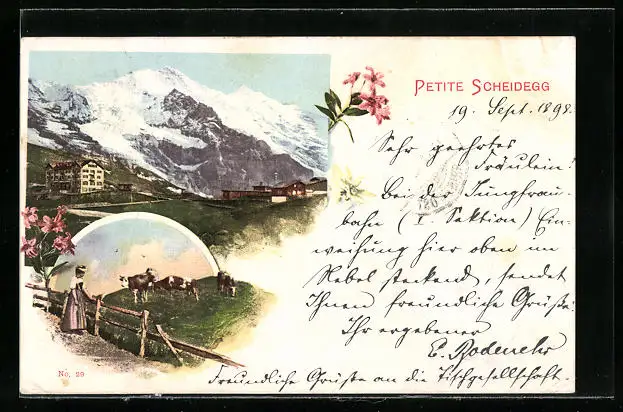 PETITE SCHEIDEGG
19. Sept. 1898
Sehr geehrtes
Fräulein!
Bei der Jungfrau-
bahn (I. Sektion) Ein-
weihung hier oben im
Nebel steckend, sendet
Ihnen freundliche Grüße:
Ihr ergebener
E. Rodenehr
Freundliche Grüße an die Tischgesellschaft.
No. 29